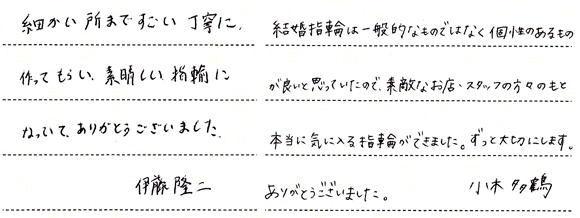 細かい所まですごい丁寧に、
作ってもらい、素晴しい指輪に
なっていて、ありがとうございました。
伊藤隆二
結婚指輪は一般的なものではなく個性のあるもの
が良いと思っていたので、素敵なお店、スタッフの方々のもと
本当に気に入る指輪ができました。ずっと大切にします。
ありがとうございました。 小木 多鶴